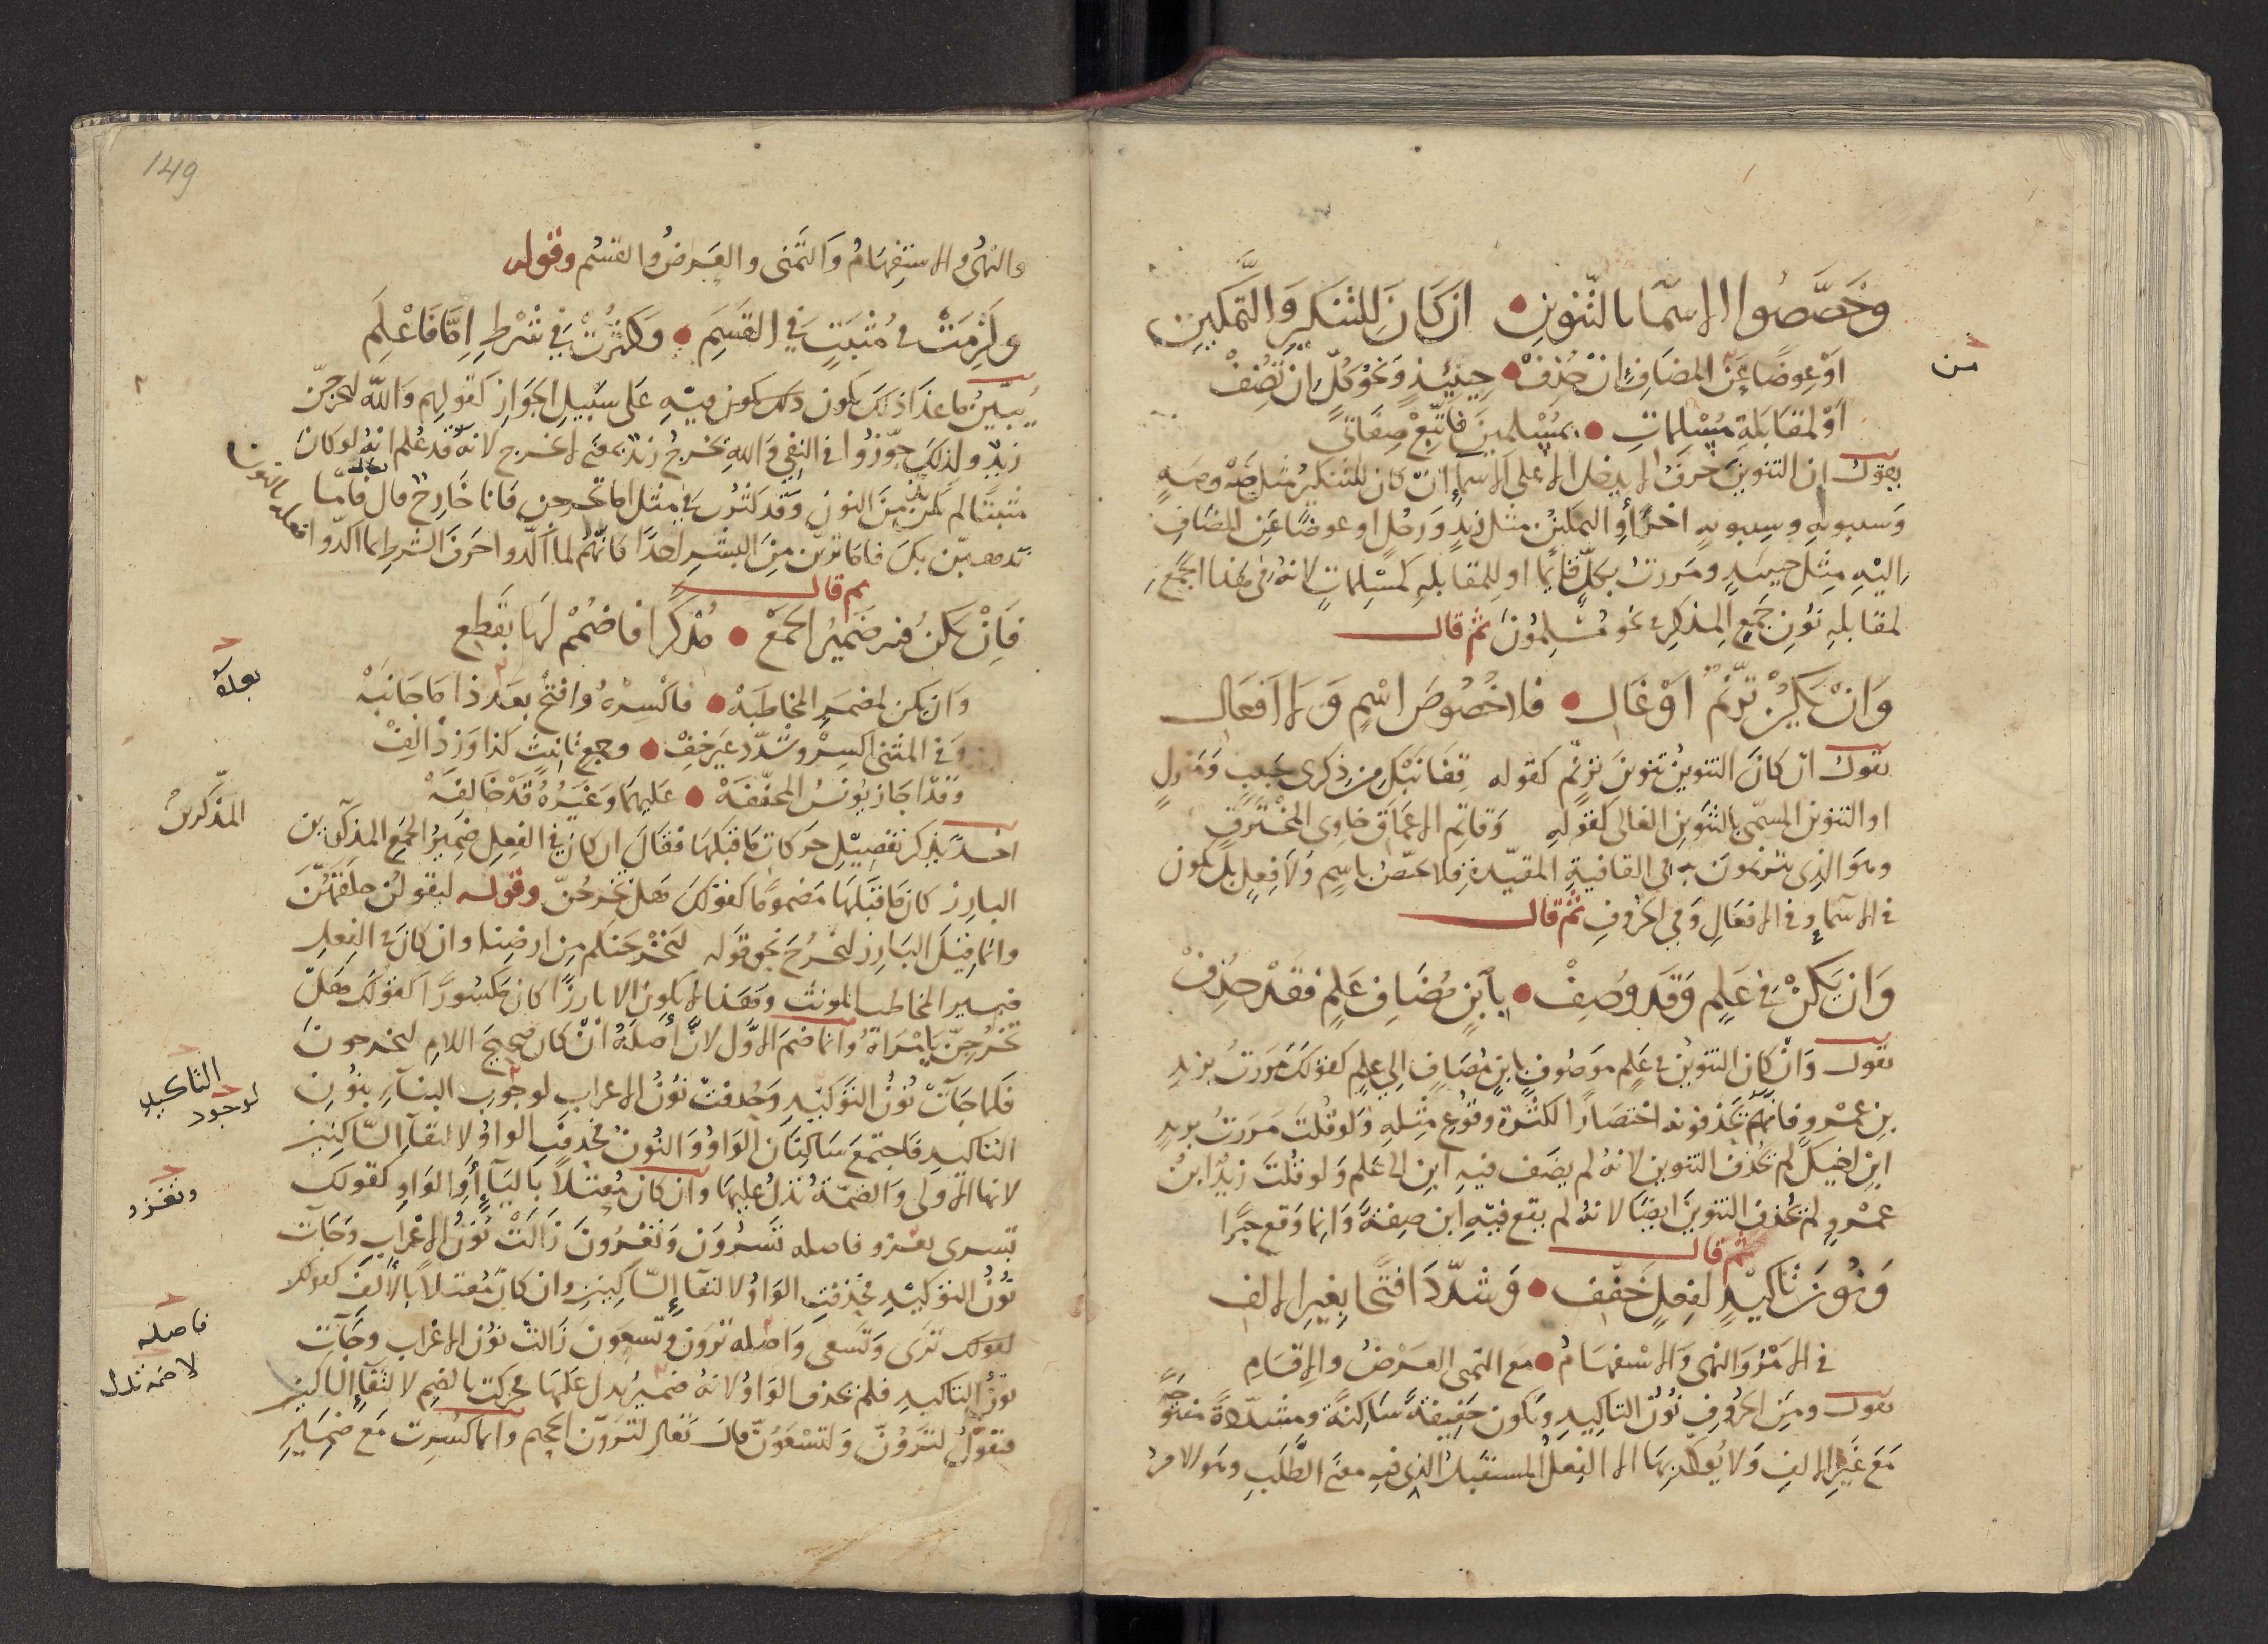 وخصصوا الاسما بالتنوين • ان كان للتنكير والتمكين
اوعوضا عن المضاف ان حذف • حينئذ ونحو كل ان تضف
من
او لمقابلة مسلمات • بمسلمين فاتبع صفاتي
يقول ان التنوين حرف لا يدخل الا على الاسما إن كان للتنكير مثل صه وصه
وسيبويه وسيبويه اخر أو التمكين مثل زيد ورجل او عوضا عن المضاف
اليه مثل حينئذ ومررت بكل قائما او للمقابله كمسلمات لانه في هذا الجمع
لمقابله نون جمع المذكر في نحو مسلمون ثم قال
وان يكن ترنم او غال • فلا خصوص اسم ولا افعال
يقول ان كان التنوين تنوين ترنم كقوله قفا نبك من ذكرى حبيب ومنزل
او التنوين المسمى بالتنوين الغالى كقوله وقاتم الاعماق خاوى المخترق
وهو الذى يترنمون به في القافية المقيدة فلا يختص باسم ولا فعل بل يكون
في الاسماء وفي الافعال وفي الحروف ثم قال
وان يكن في علم وقد وصف • بابن مضاف علم فقد حذف
يقول وان كان التنوين في علم موصوف بابن مضاف الى علم كقولك مررت بزيد
بن عمرو فانهم يحذفونه اختصارا لكثرة وقوع مثله ولو قلت مررت بزيد
ابن اخيك لم تحذف التنوين لانه لم يضف فيه ابن الى علم ولو قلت زيد ابن
عمرو لم تحذف التنوين ايضا لانه لم يقع فيه ابن صفة وانما وقع خبرا
ثم قال
ونون تاكيد لفعل خفف • وشدد افتحا بغير الالف
في الامر والنهى والاستفهام • مع التمنى العرض والاقسام
يقول ومن الحروف نون التاكيد وتكون خفيفة ساكنة ومشددة مفتوحة
مع غير الالف ولا يوكد بها الا الفعل المستقبل الذى فيه معنى الطلب وهو الامر
149
والنهى والاستفهام والتمنى والعرض والقسم وقوله
ولزمت في مثبت في القسم • وكثرت في شرط اما فاعلم
يبين ما عدا ذلك يكون فيه على سبيل الجواز كقولهم والله ليخرجن
زيد ولذلك جوزوا في النفى والله يخرج زيد بمعنى لا يخرج لانه قد علم انه لو كان
مثبتا لم يكن من النون وقد كثرت في مثل اما تخرجن فانا خارج قال فاما
نذهبن بك فاما ترين من البشر احدا كانهم لما اكدوا حرف الشرط بما اكدوا
فعله بالنون
ثم قال
فان يكن فيه ضمير الجمع • مذكرا فاضمم لها بقطع
وان يكن لمضمر المخاطبه • فاكسره وافتح بعد ذا ما جانبه
بعده
وفي المثنى اكسر وشدد غير خف • وجمع تانيث كذا وزد الف
وقد اجاز يونس المخففه • عليهما وغيره قد خالفه
اخذ يذكر تفصيل حركات ما قبلها فقال ان كان في الفعل ضمير الجمع المذكرين
المذكرين
البارز كان ما قبلها مضموما كقولك هل تخرجن وقوله ليقولن خلقهن
وانما قيل البارز ليخرج نحو قوله لنخرجنكم من ارضنا وان كان في الفعل
ضمير المخاطب المونث وهذا لا يكون الا بارزا كان مكسورا كقولك هل
تخرجن يا مراة وانما ضم الاول لان أصله ان كان صحيح اللام ليخرجون
فلما جآت نون التوكيد وحذفت نون الاعراب لوجوب البناء بنون
التاكيد
لوجود
التاكيد فاجتمع ساكنان الواو والنون فحذفت الواو لالتقآ الساكنين
لانها الاولى والضمة تدل عليها وان كان معتلا باليآ أو الواو كقولك
وتغزو
تسرى يغزو فاصله تسرون وتغزون زالت نون الاعراب وجآت
نون التوكيد فحذفت الواو لالتقآ الساكنين وان كان معتلا بالألف كقولك
لقولك ترى وتسعى واصله ترون وتسعون زالت نون الاعراب وجآت
فاصله
لا ضمة تدل
نون التاكيد فلم تحذف الواو لانه ضمير يدل عليها فحركت بالضم لالتقآ الساكنين
فتقول لترون ولتسعون قال تعالى لترون الجحيم وانما كسرت مع ضمير